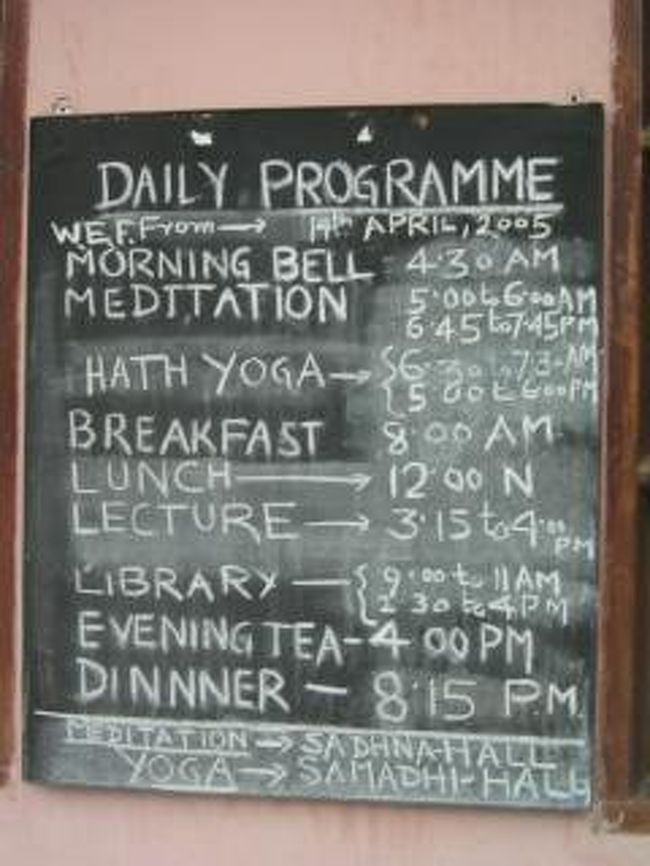 DAILY PROGRAMME
W.E.F. From → 14th APRIL, 2005
MORNING BELL 4·30 AM
MEDITATION 5·00 to 6·00 AM
6·45 to 7·45 PM
HATH YOGA → {6·30 to 7·3- AM
{5·00 to 6·00 PM
BREAKFAST 8·00 AM
LUNCH → 12·00 N
LECTURE → 3·15 to 4·00 PM
LIBRARY — {9·00 to 11 AM
{2·30 to 4 PM
EVENING TEA - 4·00 PM
DINNNER — 8·15 P.M.
MEDITATION → SADHNA-HALL
YOGA → SAMADHI-HALL